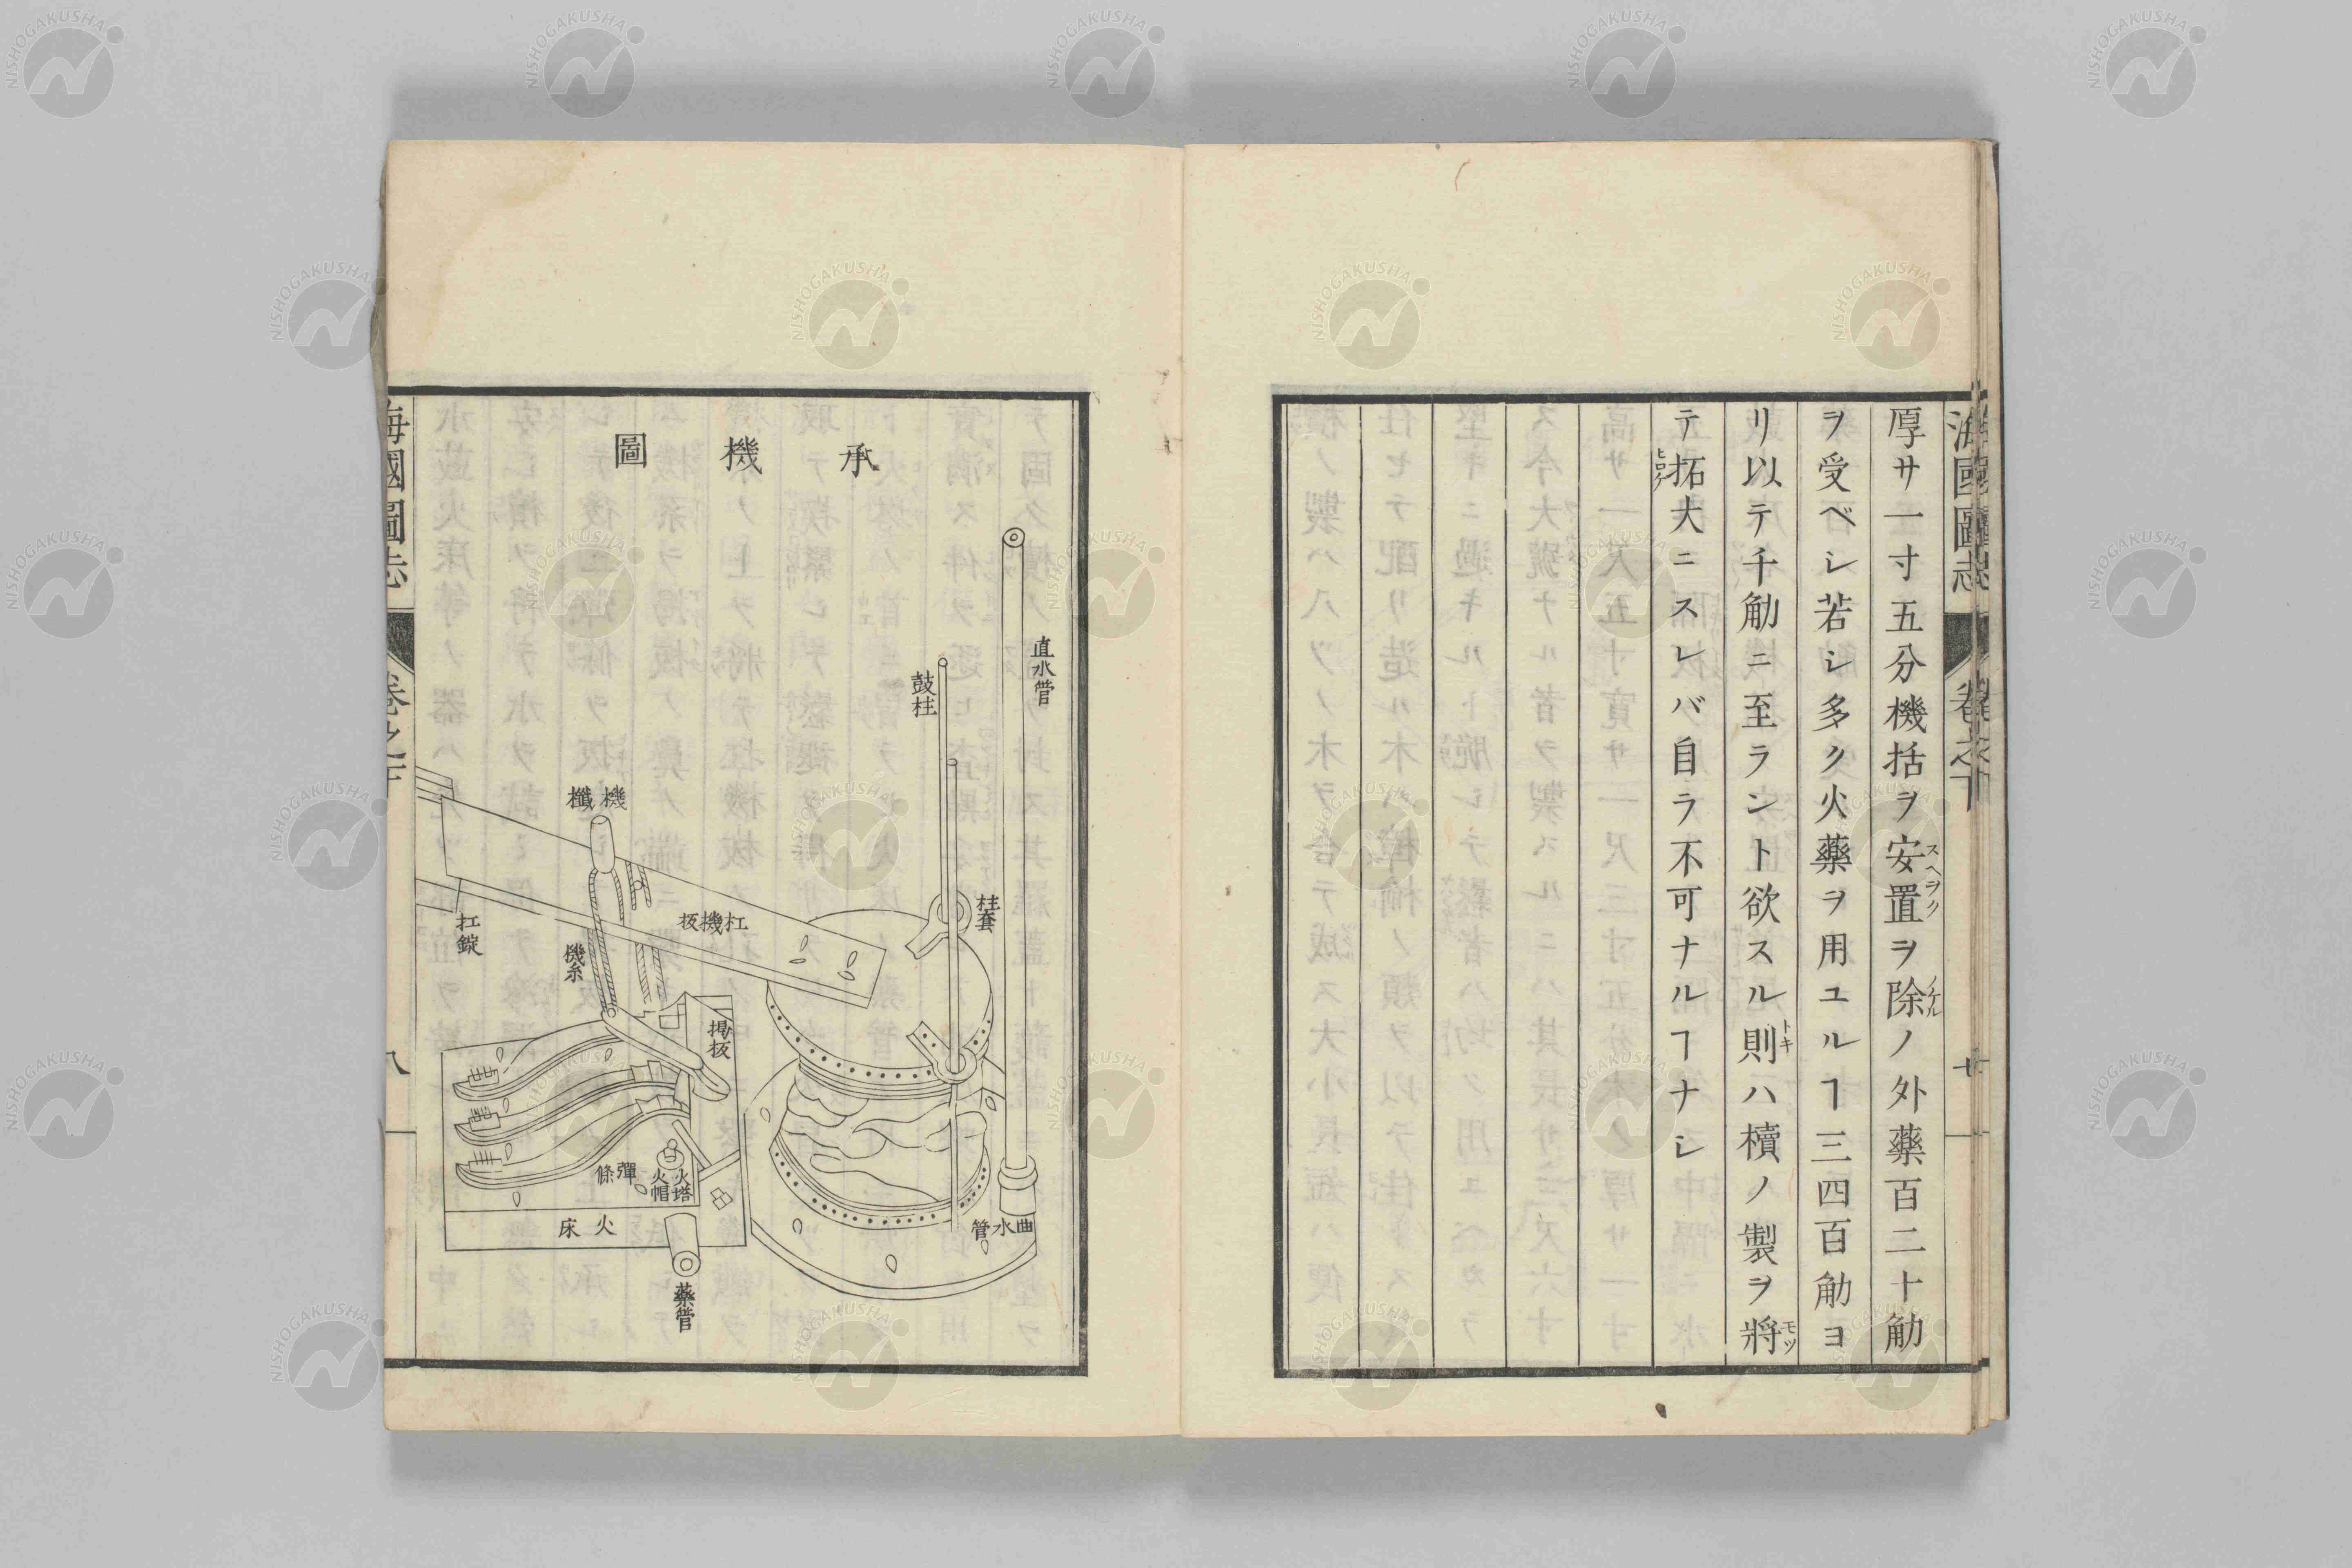 厚サ一寸五分機括ヲ安置ヲ除ノ外藥百二十觔
スヘヲク
ノケル
ヲ受ベシ若シ多ク火藥ヲ用ユルヿ三四百觔ヨ
リ以テ千觔ニ至ラント欲スル則ハ櫝ノ製ヲ將
トキ
モツ
テ拓大ニスレバ自ラ不可ナルヿナシ
ヒロク
海國圖志
卷之下
承機圖
直水管
鼓柱
柱套
機櫼
扛機板
扛錠
機糸
揭板
彈條
火塔
火帽
火床
曲水管
藥管
海國圖志
卷之下
八
NISHOGAKUSHA